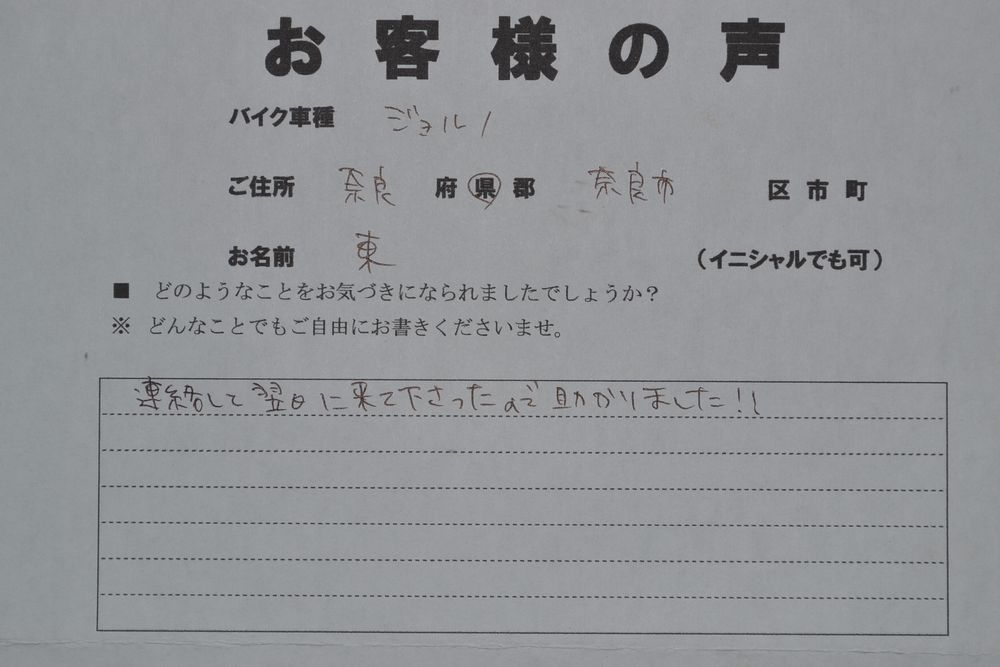 お客様の声
バイク車種 ジョルノ
ご住所 奈良 府県郡 奈良市 区市町
お名前 東 (イニシャルでも可)
■ どのようなことをお気づきになられましたでしょうか?
※ どんなことでもご自由にお書きくださいませ。
連絡して翌日に来て下さったので助かりました!!